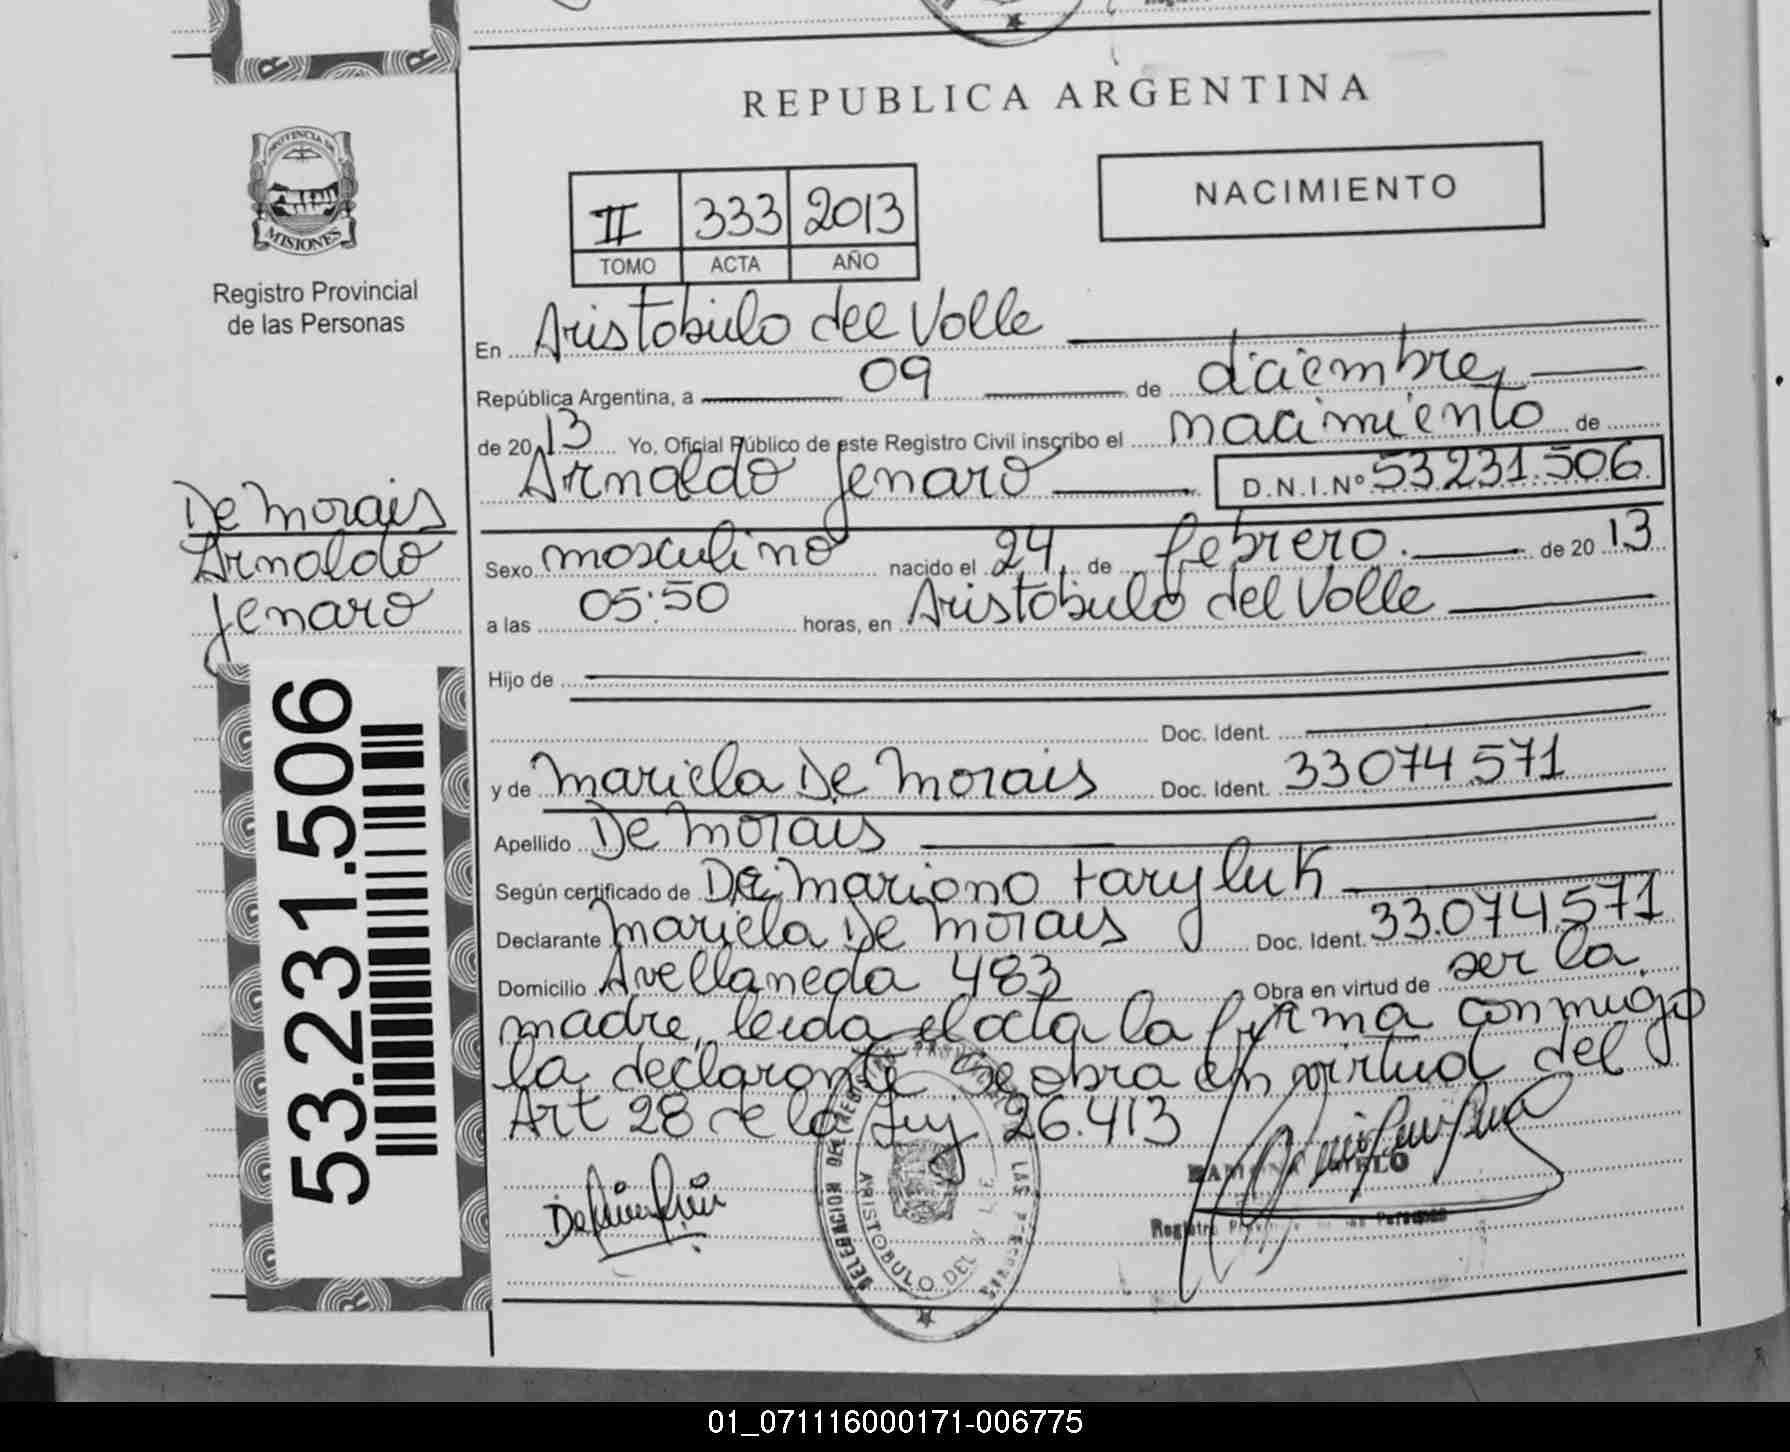 REPUBLICA ARGENTINA
PROVINCIA DE
MISIONES
Registro Provincial
de las Personas
NACIMIENTO
II 333 2013
TOMO ACTA AÑO
En Aristobulo del Valle
República Argentina, a 09 de diciembre,
de 2013 Yo, Oficial Público de este Registro Civil inscribo el nacimiento de
Arnaldo Jenaro D.N.I.Nº 53.231.506
De Morais
Arnaldo
Jenaro
Sexo masculino nacido el 24 de febrero. de 2013
a las 05:50 horas, en Aristobulo del Valle
Hijo de
Doc. Ident.
y de Mariela De Morais Doc. Ident. 33074.571
Apellido De Morais
Según certificado de Mariano Taryluk
Declarante Mariela De Morais Doc. Ident. 33.074.571
Domicilio Avellaneda 483 Obra en virtud de ser la
madre, leida el acta la firma conmigo
la declarante se obra en virtud del
Art 28 de la Ley 26.413
53.231.506
DELEGACION DEL REGISTRO LAS PERSONAS
ARISTOBULO DEL VALLE
RAMONA
Registro
01_071116000171-006775